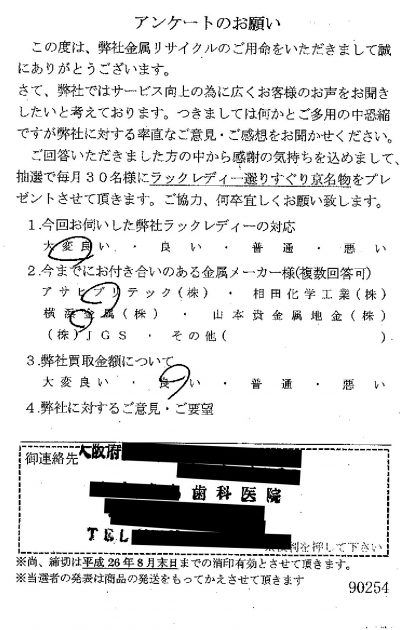 アンケートのお願い
この度は、弊社金属リサイクルのご用命をいただきまして誠
にありがとうございます。
さて、弊社ではサービス向上の為に広くお客様のお声をお聞き
したいと考えております。つきましては何かとご多用の中恐縮
ですが弊社に対する率直なご意見・ご感想をお聞かせください。
ご回答いただきました方の中から感謝の気持ちを込めまして、
抽選で毎月30名様にラックレディー選りすぐり京名物をプレ
ゼントさせて頂きます。ご協力、何卒宜しくお願い致します。
1.今回お伺いした弊社ラックレディーの対応
大変良い・良い・普通・悪い
2.今までにお付き合いのある金属メーカー様(複数回答可)
アサヒプリテック(株)・相田化学工業(株)
横浜金属(株)・山本貴金属地金(株)
(株)JGS・その他( )
3.弊社買取金額について
大変良い・良い・普通・悪い
4.弊社に対するご意見・ご要望
御連絡先 大阪府
歯科医院
TEL
を押して下さい
※尚、締切は平成26年8月末日までの消印有効とさせて頂きます。
※当選者の発表は商品の発送をもってかえさせて頂きます
90254